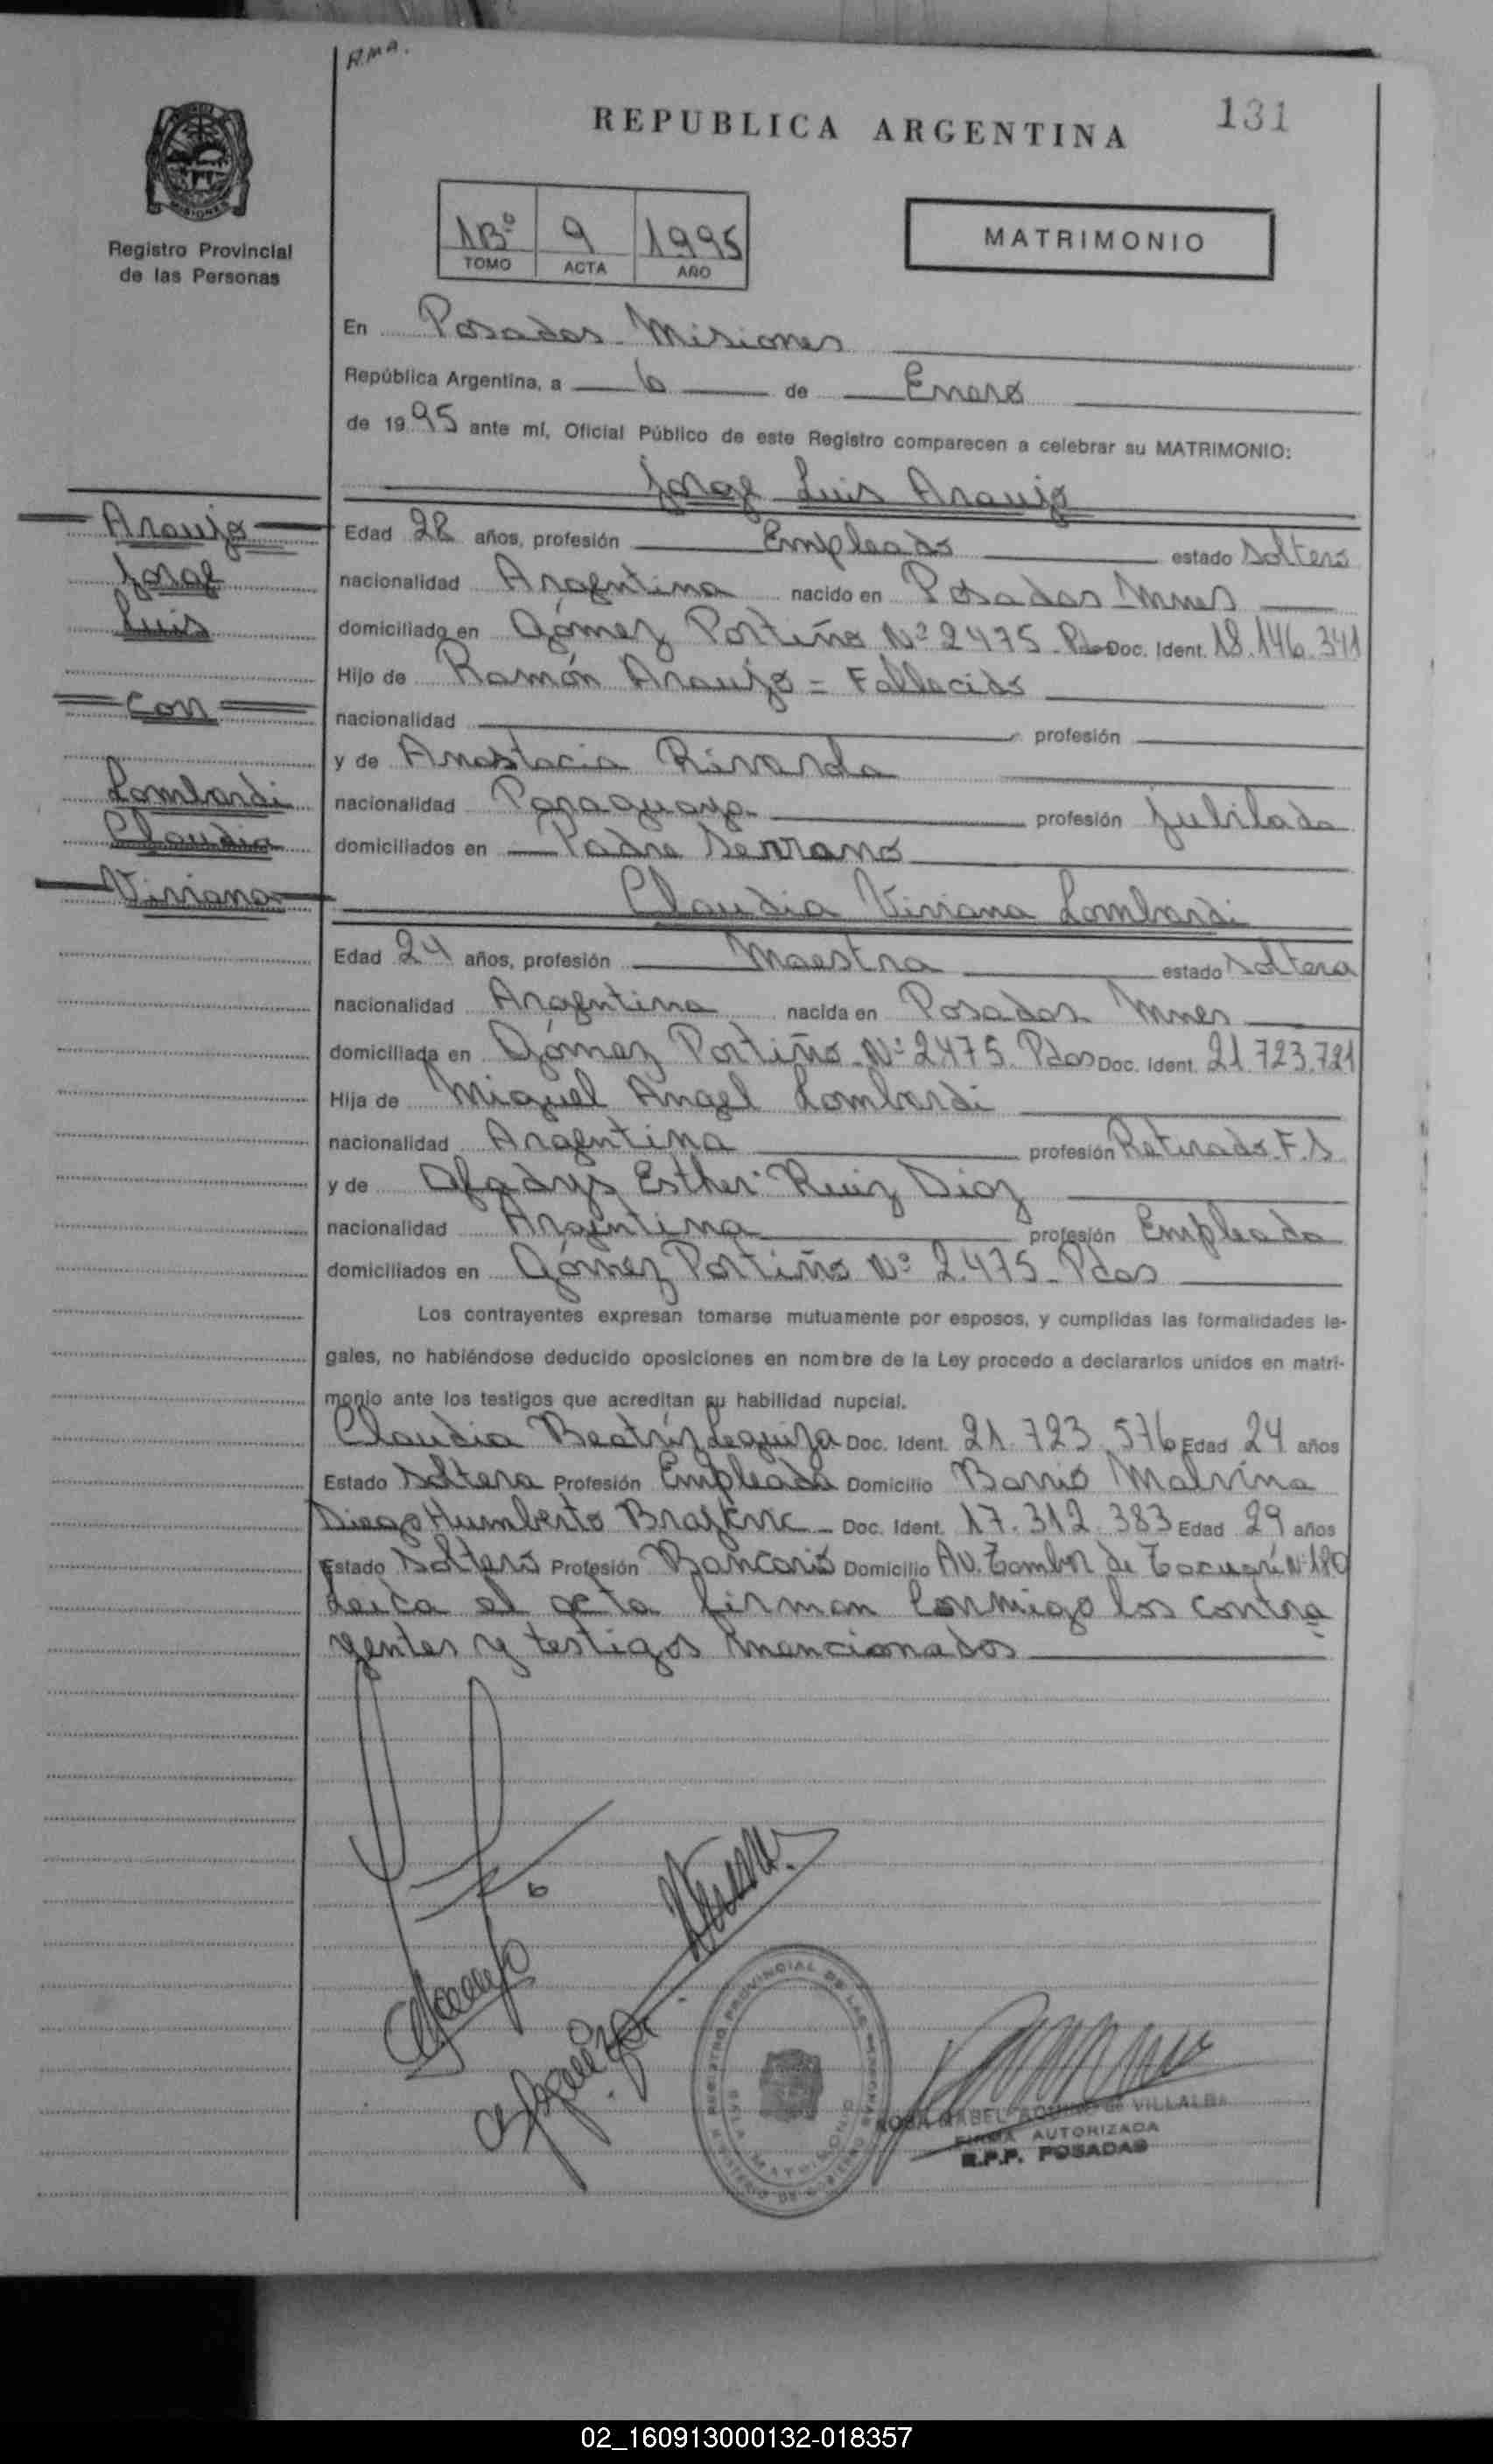 A.M.A.
REPUBLICA ARGENTINA
131
MISIONES
Registro Provincial
de las Personas
1Bº 9 1995
TOMO ACTA AÑO
MATRIMONIO
En Posadas Misiones
República Argentina, a 6 de Enero
de 1995 ante mí, Oficial Público de este Registro comparecen a celebrar su MATRIMONIO:
Jorge Luis Araujo
Araujo
Jorge
Luis
Con
Lombardi
Claudia
Viviana
Edad 28 años, profesión Empleado estado soltero
nacionalidad Argentina nacido en Posadas Mnes
domiciliado en Gómez Portiño Nº 2475 Doc. Ident. 18.146.341
Hijo de Ramón Araujo = Fallecido
nacionalidad profesión
y de Anastacia
nacionalidad Paraguaya profesión Jubilada
domiciliados en Padre Serrano
Claudia Viviana Lombardi
Edad 24 años, profesión Maestra estado soltera
nacionalidad Argentina nacida en Posadas Mnes
domiciliada en Gómez Portiño Nº 2475 Pdas Doc. Ident. 21.723.721
Hija de Miguel Angel Lombardi
nacionalidad Argentina profesión Retirado F.S
y de Gladys Esther Ruiz Diaz
nacionalidad Argentina profesión Empleada
domiciliados en Gómez Portiño Nº 2.475 - Pdas
Los contrayentes expresan tomarse mutuamente por esposos, y cumplidas las formalidades le-
gales, no habiéndose deducido oposiciones en nombre de la Ley procedo a declararlos unidos en matri-
monio ante los testigos que acreditan su habilidad nupcial.
Claudia Beatriz Leguiza Doc. Ident. 21.723.576 Edad 24 años
Estado Soltera Profesión Empleada Domicilio Barrio Malvina
Diego Humberto Doc. Ident. 17.312.383 Edad 29 años
Estado Soltero Profesión Bancario Domicilio Av. Tambor de Tacuarí Nº
Leida el acta firman conmigo los contra
yentes y testigos mencionados
REGISTRO PROVINCIAL DE LAS PERSONAS
MINISTERIO DE GOBIERNO
ROSA MABEL AQUINO de VILLALBA
FIRMA AUTORIZADA
R.P.P. POSADAS
02_160913000132-018357